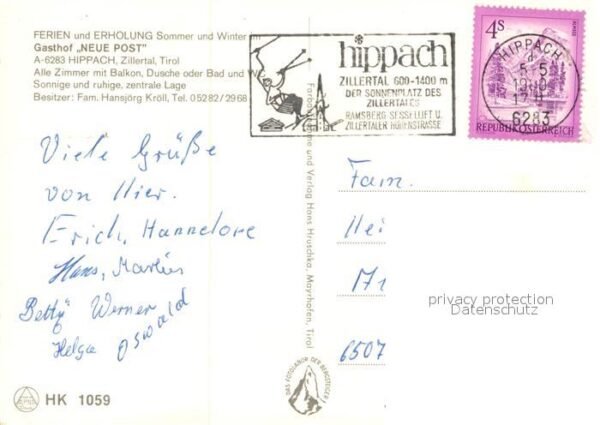 FERIEN und ERHOLUNG Sommer und Winter im
Gasthof „NEUE POST"
A-6283 HIPPACH, Zillertal, Tirol
Alle Zimmer mit Balkon, Dusche oder Bad und WC
Sonnige und ruhige, zentrale Lage
Besitzer: Fam. Hansjörg Kröll, Tel. 05282/2968
hippach
ZILLERTAL 600-1400 m
DER SONNENPLATZ DES
ZILLERTALES
RAMSBERG SESSELLIFT U.
ZILLERTALER HÖHENSTRASSE
4S
REPUBLIK ÖSTERREICH
HIPPACH
6283
Viele Grüße
von Hier.
Erich, Hannelore
Hans, Martin
Betty Werner
Helga Oswald
und Verlag Hans Hruschka, Mayrhofen, Tirol
Fam.
Hei
171
6507
privacy protection
Datenschutz
DAS FOTOLABOR DER BERGSTEIGER
HK 1059